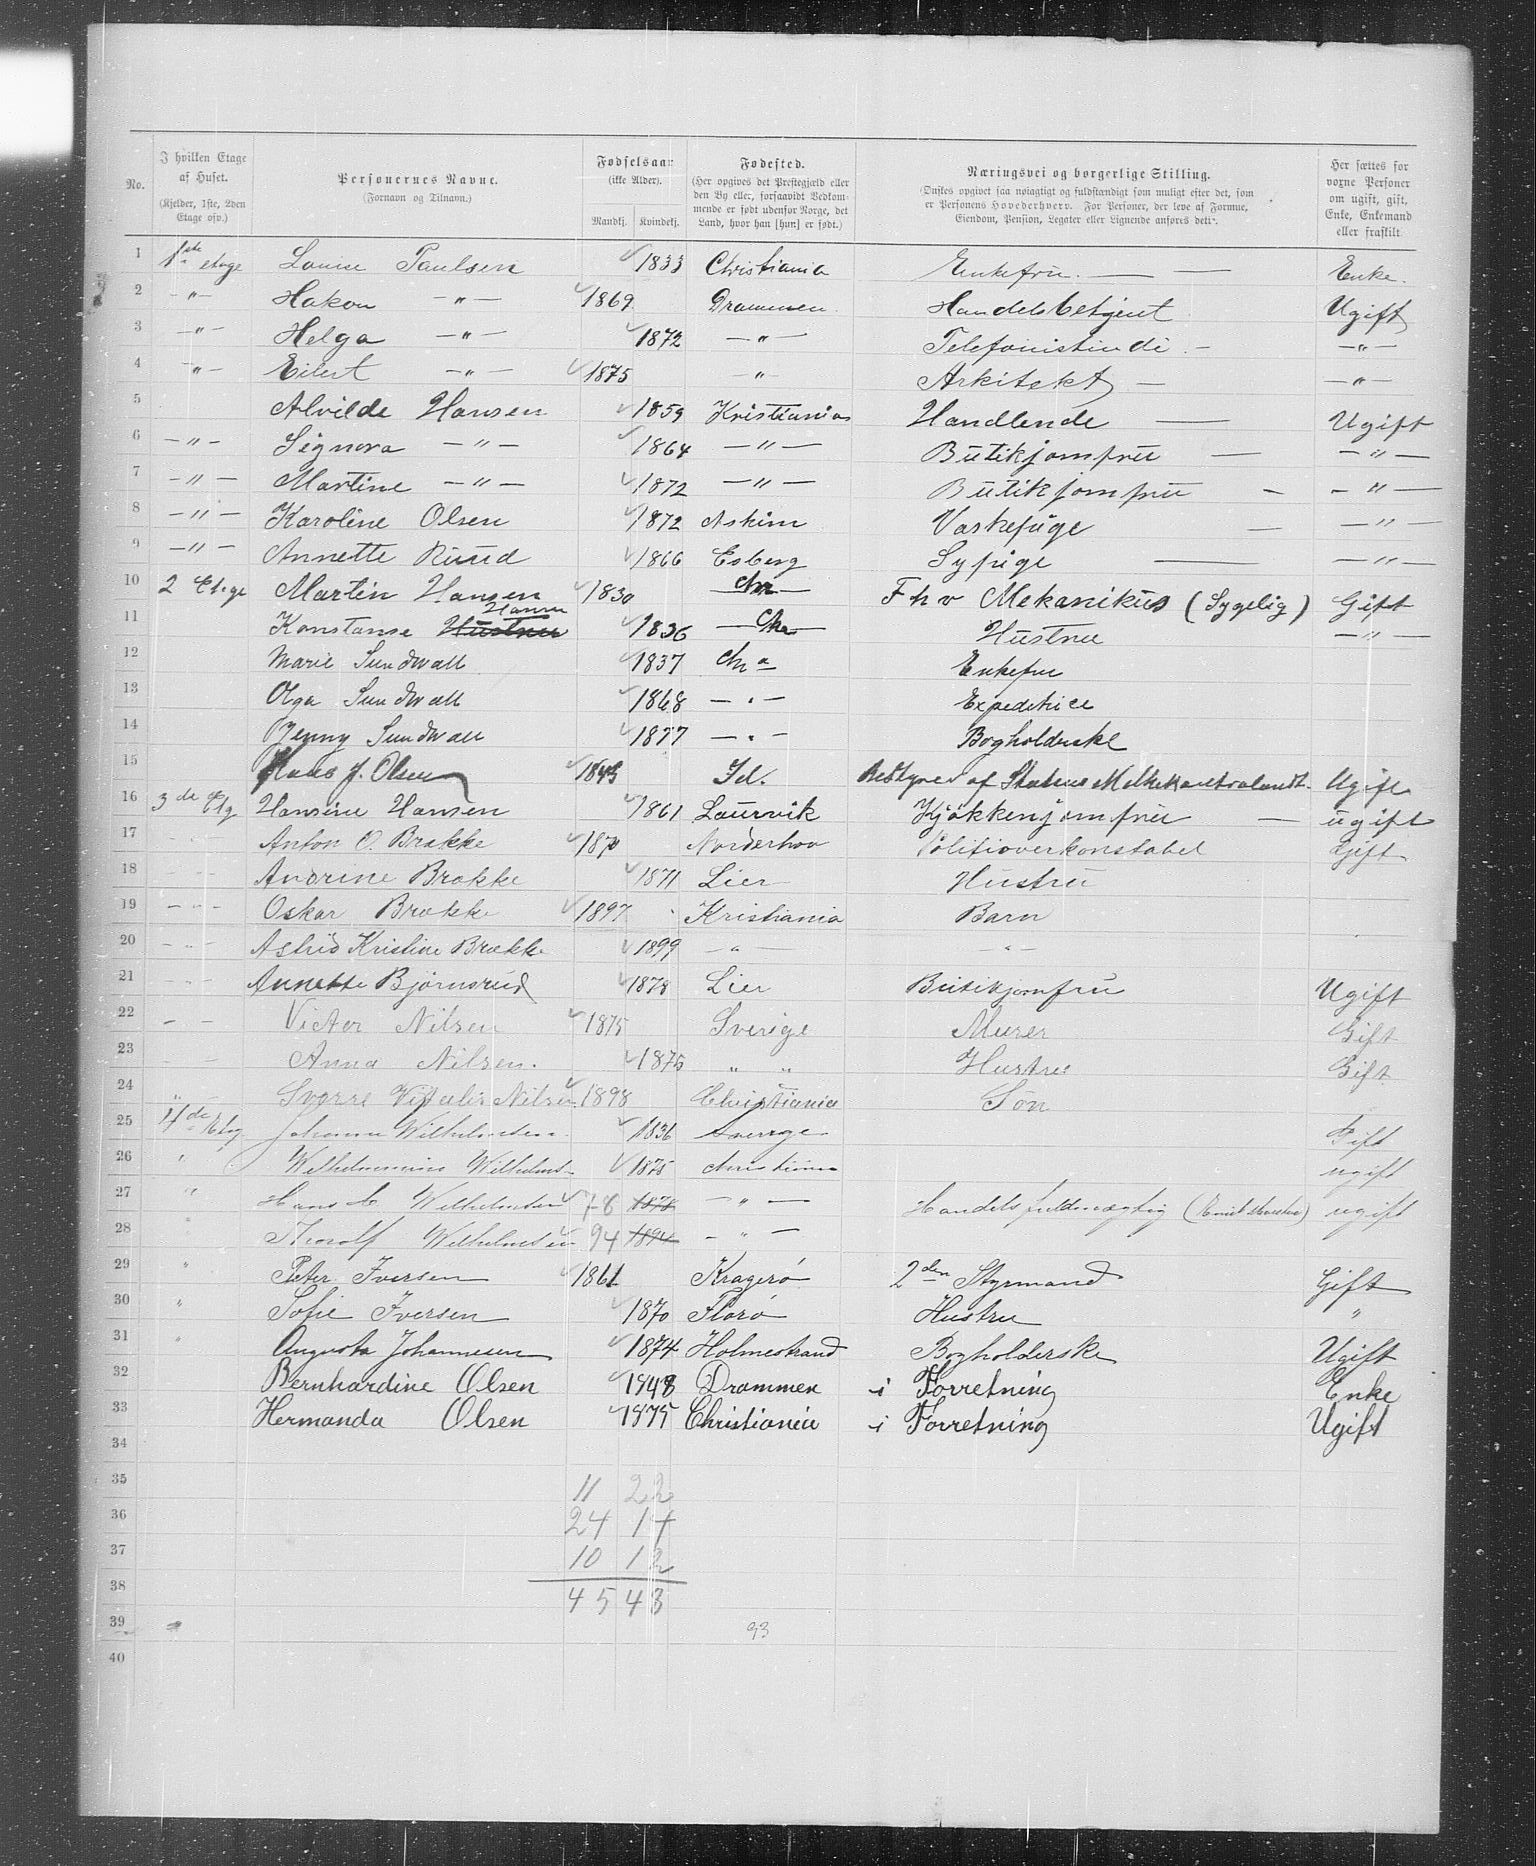 No. | I hvilken Etage af Huset. (Kjelder, 1ste, 2den Etage osv.) | Personernes Navne. (Fornavn og Tilnavn.) | Fødselsaar (ikke Alder). Mandkj. Kvindekj. | Fødested. (Her opgives det Prestegjæld eller den By eller, forsaavidt Vedkommende er født udenfor Norge, det Land, hvor han [hun] er født.) | Næringsvei og borgerlige Stilling. (Ønskes opgivet saa nøiagtigt og fuldstændigt som muligt efter det, som er Personens Hovederhverv. For Personer, der leve af Formue, Eiendom, Pension, Legater eller Lignende anføres dette.) | Her sættes for voxne Personer om ugift, gift, Enke, Enkemand eller fraskilt.
1 1ste etage Louise Paulsen 1833 Christiania Enkefru. — — Enke.
2 — " — Hakon — " — 1869 Drammen Handelsbetjent Ugift
3 — " — Helga — " — 1872 — " — Telefonistinde — — " —
4 — " — Eilert — " — 1875 — " — Arkitekt — — " —
5 Alvilde Hansen 1859 Kristiania Handlende — Ugift
6 — " — Signora — " — 1864 — " — Butikjomfru — — " —
7 — " — Martine — " — 1872 — " — Butikjomfru — — " —
8 — " — Karoline Olsen 1872 Askim Vaskepige — — " —
9 — " — Annette Ruud 1866 Esberg Sypige — — " —
10 2 Etage Martin Hansen 1830 Chr Fhv Mekanikus (Sygelig) Gift
11 Konstanse Hustru Hansen 1836 Chr Hustru — " —
12 Marie Sundwall 1837 Chra Enkefru
13 Olga Sundwall 1868 — " — Expeditrice
14 Jenny Sundwall 1877 — " — Bogholderske
15 Hans J. Olsen 1843 Id. Bestyrer af Statens Ugift
16 3de Etg Hansine Hansen 1861 Laurvik Kjøkkenjomfru — ugift
17 Anton O. Brække 1870 Norderhov Politioverkonstabel Gift
18 " Andrine Brække 1871 Lier Hustru
19 — " — Oskar Brække 1897 Kristiania Barn
20 — " — Astrid Kristine Brække 1899 — " — — " —
21 — " — Annette Bjørnsrud 1878 Lier Butikjomfru Ugift
22 — — Victor Nilsen 1875 Sverige Murer Gift
23 — — Anna Nilsen. 1875 " " Hustru Gift
24 " — Sverre Vitalis Nilsen 1898 Christiania Søn
25 4de Etg Johanne Wilhelmsen 1836 Sverrige Gift
26 " Wilhelmine Wilhelms- 1875 Christiania ugift
27 " Hans C Wilhelmsen 78 1878 — " — Handelsfuldmægtig ugift
28 " Thorolf Wilhelmsen 94 1894 — " —
29 " Peter Iversen 1861 Kragerø 2den Styrmand Gift
30 " Sofie Iversen 1870 Florø Hustru "
31 " Augusta Johannesen 1874 Holmestrand Bogholderske Ugift
32 Bernhardine Olsen 1848 Drammen i Forretning Enke
33 Hermanda Olsen 1875 Christiania i Forretning Ugift
34
35 11 22
36 24 14
37 10 12
38 45 43
39 93
40